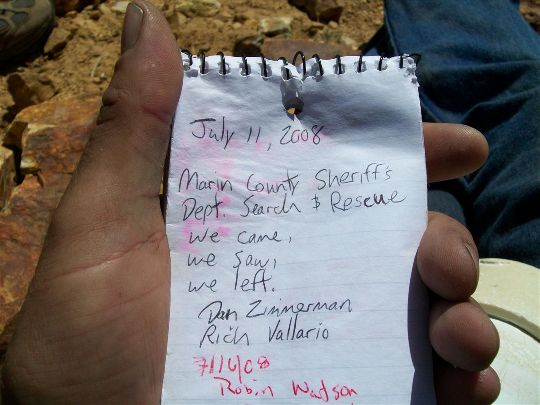 July 11, 2008
Marin County Sheriff's
Dept. Search & Rescue
we came,
we saw,
we left.
Dan Zimmerman
Rich Vallario
7/16/08
Robin Watson